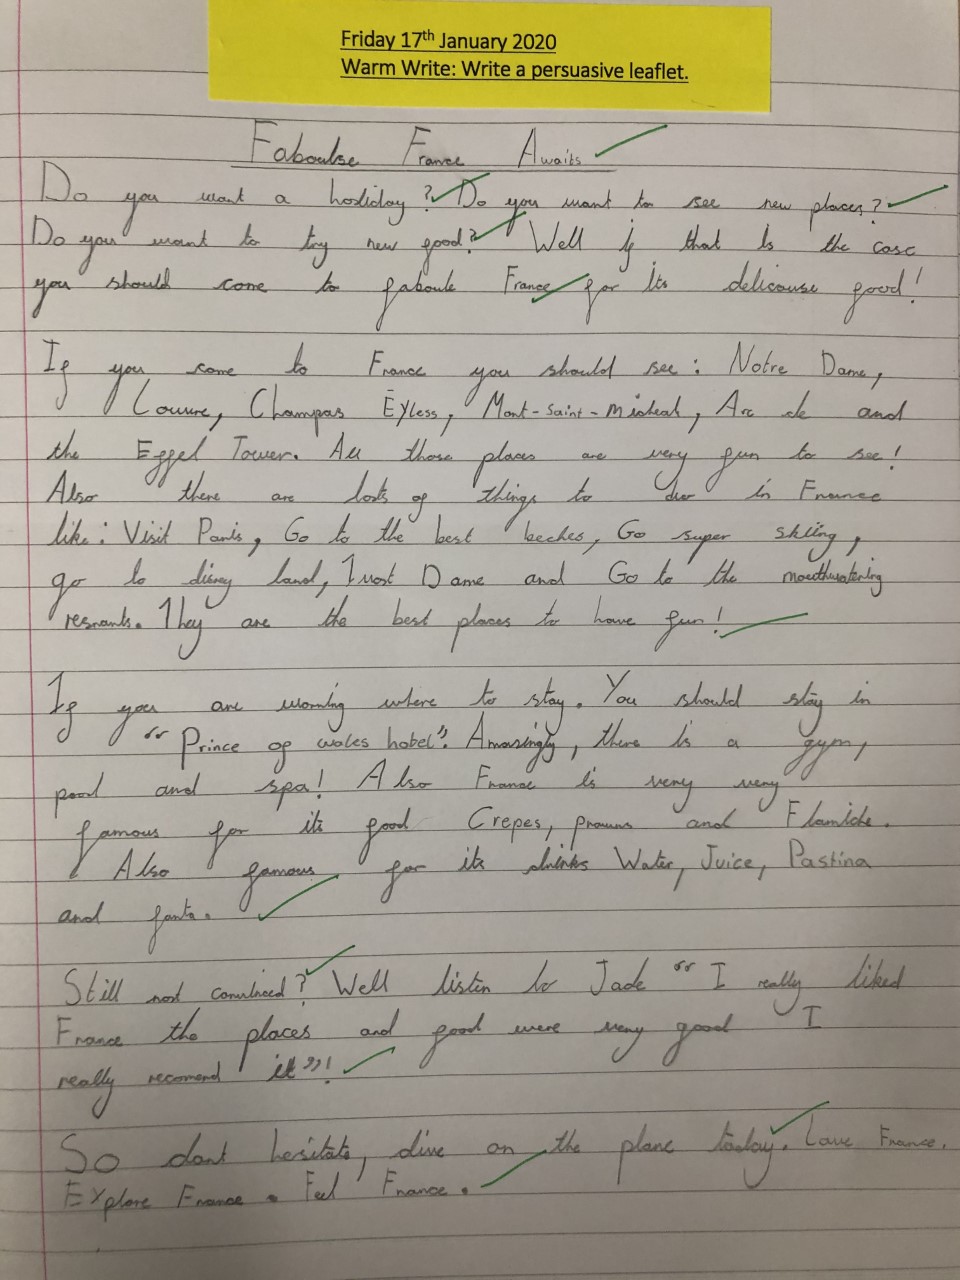 Friday 17th January 2020
Warm Write: Write a persuasive leaflet.
Faboulse France Awaits
Do you want a holiday? Do you want to see new places?
Do you want to try new food? Well if that is the case
you should come to faboule France for its delicouse food!
If you come to France you should see: Notre Dame,
Louvre, Champas Eyless, Mont-Saint-Micheal, Arc de and
the Effel Tower. All those places are very fun to see!
Also there are losts of things to do in France
like: Visit Paris, Go to the best beches, Go super skiing,
go to disney land, Dame and Go to the mouthwatering
resnants. They are the best places to have fun!
If you are worning where to stay. You should stay in
"Prince of wales hotel". Amasingly, there is a gym,
pool and spa! Also France is very very
famous for its food Crepes, prawns and Flamiche.
Also famous for its drinks Water, Juice, Pastina
and fanta.
Still not convinced? Well listen to Jade "I really liked
France the places and food were very good I
really recomend it"!
So dont hesitate, dive on the plane today. Love France.
Explore France. Feel France.